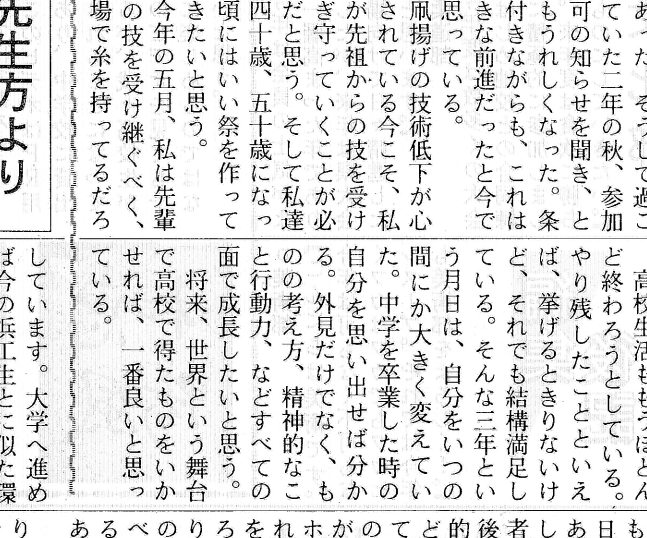 あった。そうして過ご
ていた二年の秋、参加
可の知らせを聞き、と
もうれしくなった。条
付きながらも、これは
きな前進だったと今で
思っている。
凧揚げの技術低下が心
されている今こそ、私
が先祖からの技を受け
ぎ守っていくことが必
だと思う。そして私達
四十歳、五十歳になっ
頃にはいい祭を作って
きたいと思う。
今年の五月、私は先輩
の技を受け継ぐべく、
場で糸を持ってるだろ
先生方より
高校生活ももうほとん
ど終わろうとしている。
やり残したことといえ
ば、挙げるときりないけ
ど、それでも結構満足し
ている。そんな三年とい
う月日は、自分をいつの
間にか大きく変えてい
た。中学を卒業した時の
自分を思い出せば分か
る。外見だけでなく、も
のの考え方、精神的なこ
と行動力、などすべての
面で成長したいと思う。
将来、世界という舞台
で高校で得たものをいか
せれば、一番良いと思っ
ている。
しています。大学へ進め
ば今の兵工生とに似た環
も
日
あ
し
者
後
的
ど
て
の
が
ホ
れ
を
ろ
り
の
べ
る
あ
り